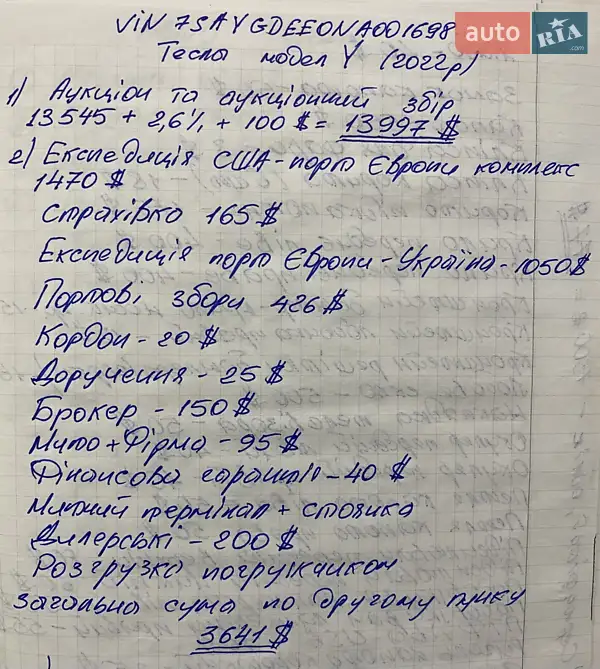 VIN 7SAYGDEE0NA001698
Тесла модел Y (2022р)
auto RIA.com
1) Аукціон та аукціонний збір
13545 + 2,6% + 100$ = 13997$
2) Експедиція США-порт Європи комплекс
1470$
Страхівка 165$
Експедиція порт Європи-Україна-1050$
Портові збори 426$
Кордон - 20$
Доручення - 25$
Брокер - 150$
Мито+Фірма - 95$
Фінансова гарантія - 40$
Митний термінал + стоянка
Дилерські - 200$
Розгрузка погрузчиком
Загальна сума по другому пунку
3641$